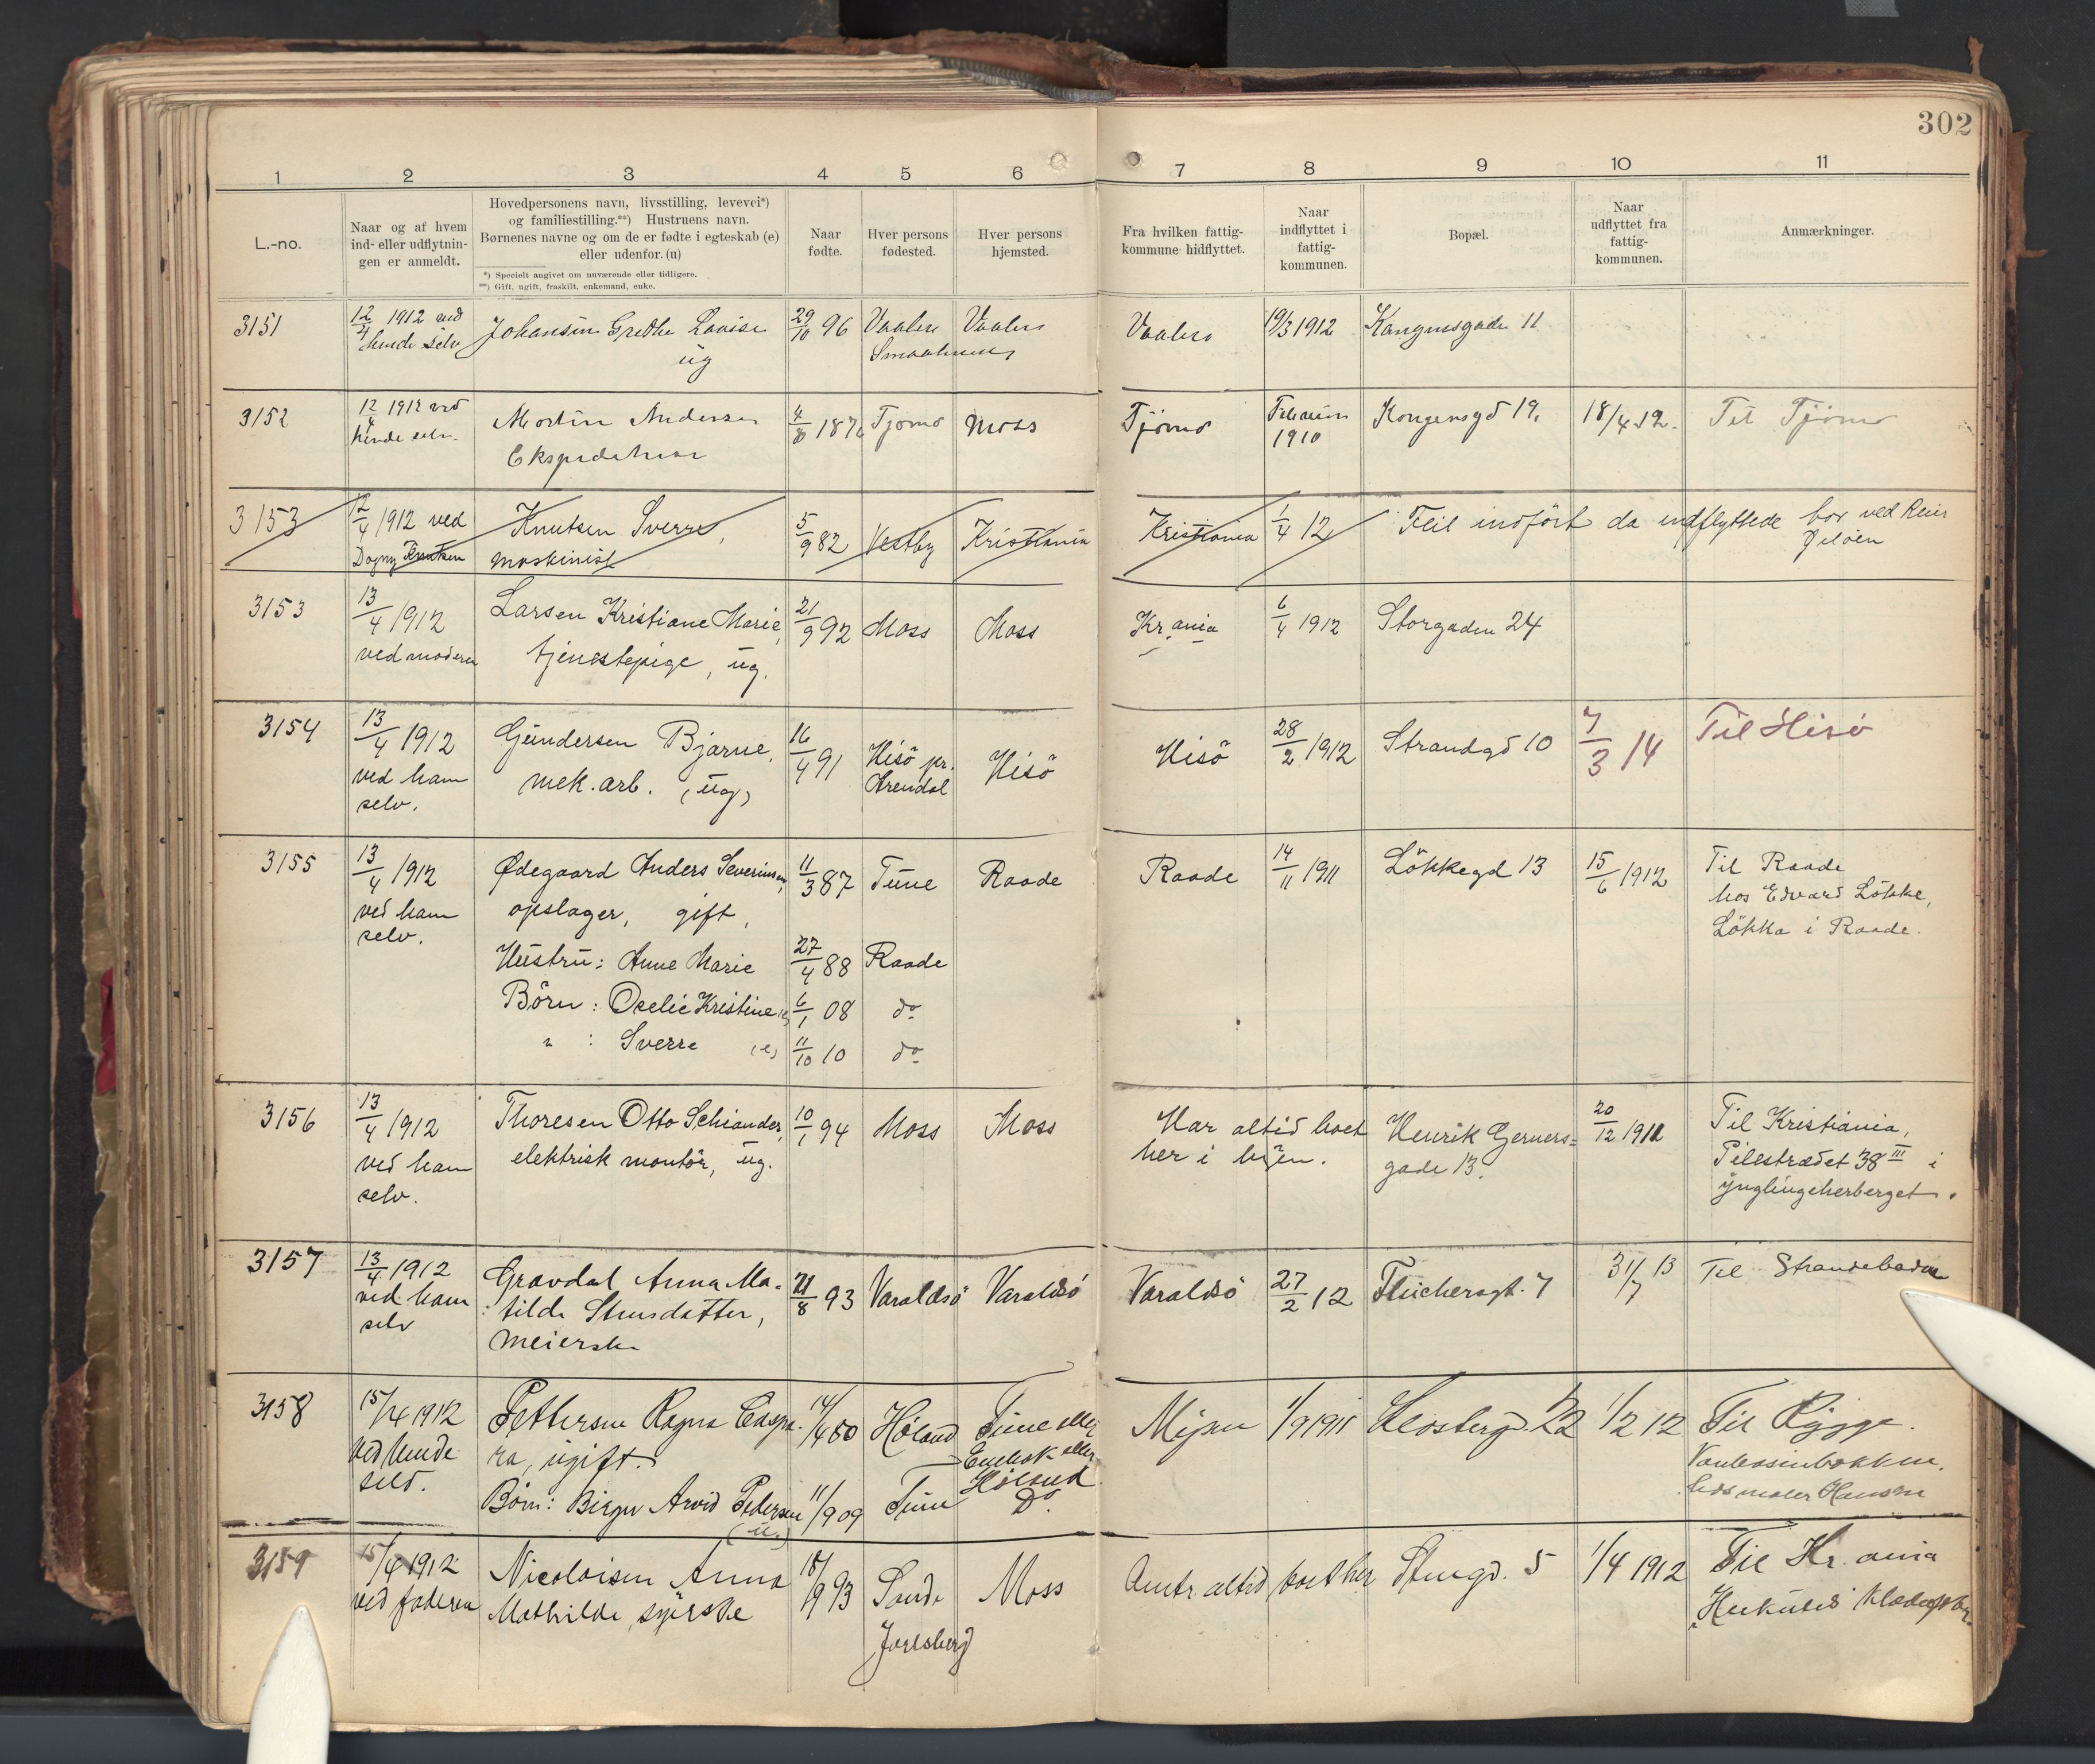 302
1 2 3 4 5 6 7 8 9 10 11
L.-no.
Naar og af hvem
ind- eller udflytnin-
gen er anmeldt.
Hovedpersonens navn, livsstilling, levevei*)
og familiestilling.**) Hustruens navn.
Børnenes navne og om de er fødte i egteskab (e)
eller udenfor. (u)
*) Specielt angivet om nuværende eller tidligere.
**) Gift, ugift, fraskilt, enkemand, enke.
Naar
fødte.
Hver persons
fødested.
Hver persons
hjemsted.
Fra hvilken fattig-
kommune hidflyttet.
Naar
indflyttet i
fattig-
kommunen.
Bopæl.
Naar
udflyttet fra
fattig-
kommunen.
Anmærkninger.
3151
12/4 1912 ved
hende selv
Johansen Grethe Lovise
ug
29/10 96
Vaaler
Smaalenene
Vaaler
Vaaler
19/3 1912
Kongensgade 11
3152
12/4 1912 ved
hende selv.
Martin Andersen
4/8 187
Tjømø
Moss
Tjømø
1910
Kongensgd 19.
18/4 12.
Til Tjømø
3153
12/4 1912 ved
Dagny Knutsen
Knutsen Sverre,
maskinist
5/9 82
Vestby
Kristiania
Kristiania
1/4 12
Feil indført da indflyttede bor ved Reier
Jeløen
3153
13/4 1912
ved moderen
Larsen Kristiane Marie,
tjenestepige, ug.
21/9 92
Moss
Moss
Kr.ania
6/4 1912
Storgaden 24
3154
13/4 1912
ved ham
selv.
Gundersen Bjarne,
mek. arb. (ug)
16/4 91
Hisö pr.
Arendal
Hisö
Hisö
28/2 1912
Strandgd 10
7/3 14
Til Hisö
3155
13/4 1912
ved ham
selv.
Ødegaard Anders Severinsen,
opslager, gift,
11/3 87
Tune
Raade
Raade
14/11 1911
Lökkegd 13
15/6 1912
Til Raade
hos Edvard Lökke,
Lökka i Raade.
Hustru: Anne Marie
27/4 88
Raade
Börn: Oselie Kristine (e)
6/1 08
do
" : Sverre (e)
11/10 10
do
3156
13/4 1912
ved ham
selv.
Thoresen Otto Schiander,
elektrisk montör, ug.
10/1 94
Moss
Moss
Har altid boet
her i byen.
Henrik Gerners=
gade 13.
20/12 1912
Til Kristiania,
Pilestrædet 38 III i
ynglingeherberget.
3157
13/4 1912
ved ham
selv
Gravdal Anna Ma-
tilde Stensdatter,
meierske
21/8 93
Varaldsö
Varaldsö
Varaldsö
27/2 12
Fleichersgt. 7
31/7 13
Til Strandebarm
3158
15/4 1912
ved hende
selv.
Pettersen Ragna Caspa-
ra, ugift.
14/4 80
Høland
Tune eller
eller
Høland
Mysen
1/9 1911
22
1/2 12
Til Rygge.
hos maler Hansen
Børn: Birger Arvid Pedersen
(u.)
11/9 09
Tune
Do.
3159
15/4 1912
ved faderen
Nicolaisen Anna
Mathilde, syerske
18/9 93
Sande
Jarlsberg
Moss
Omtr. altid boet her
Stengd. 5
1/4 1912
Til Kr.ania
Herkules